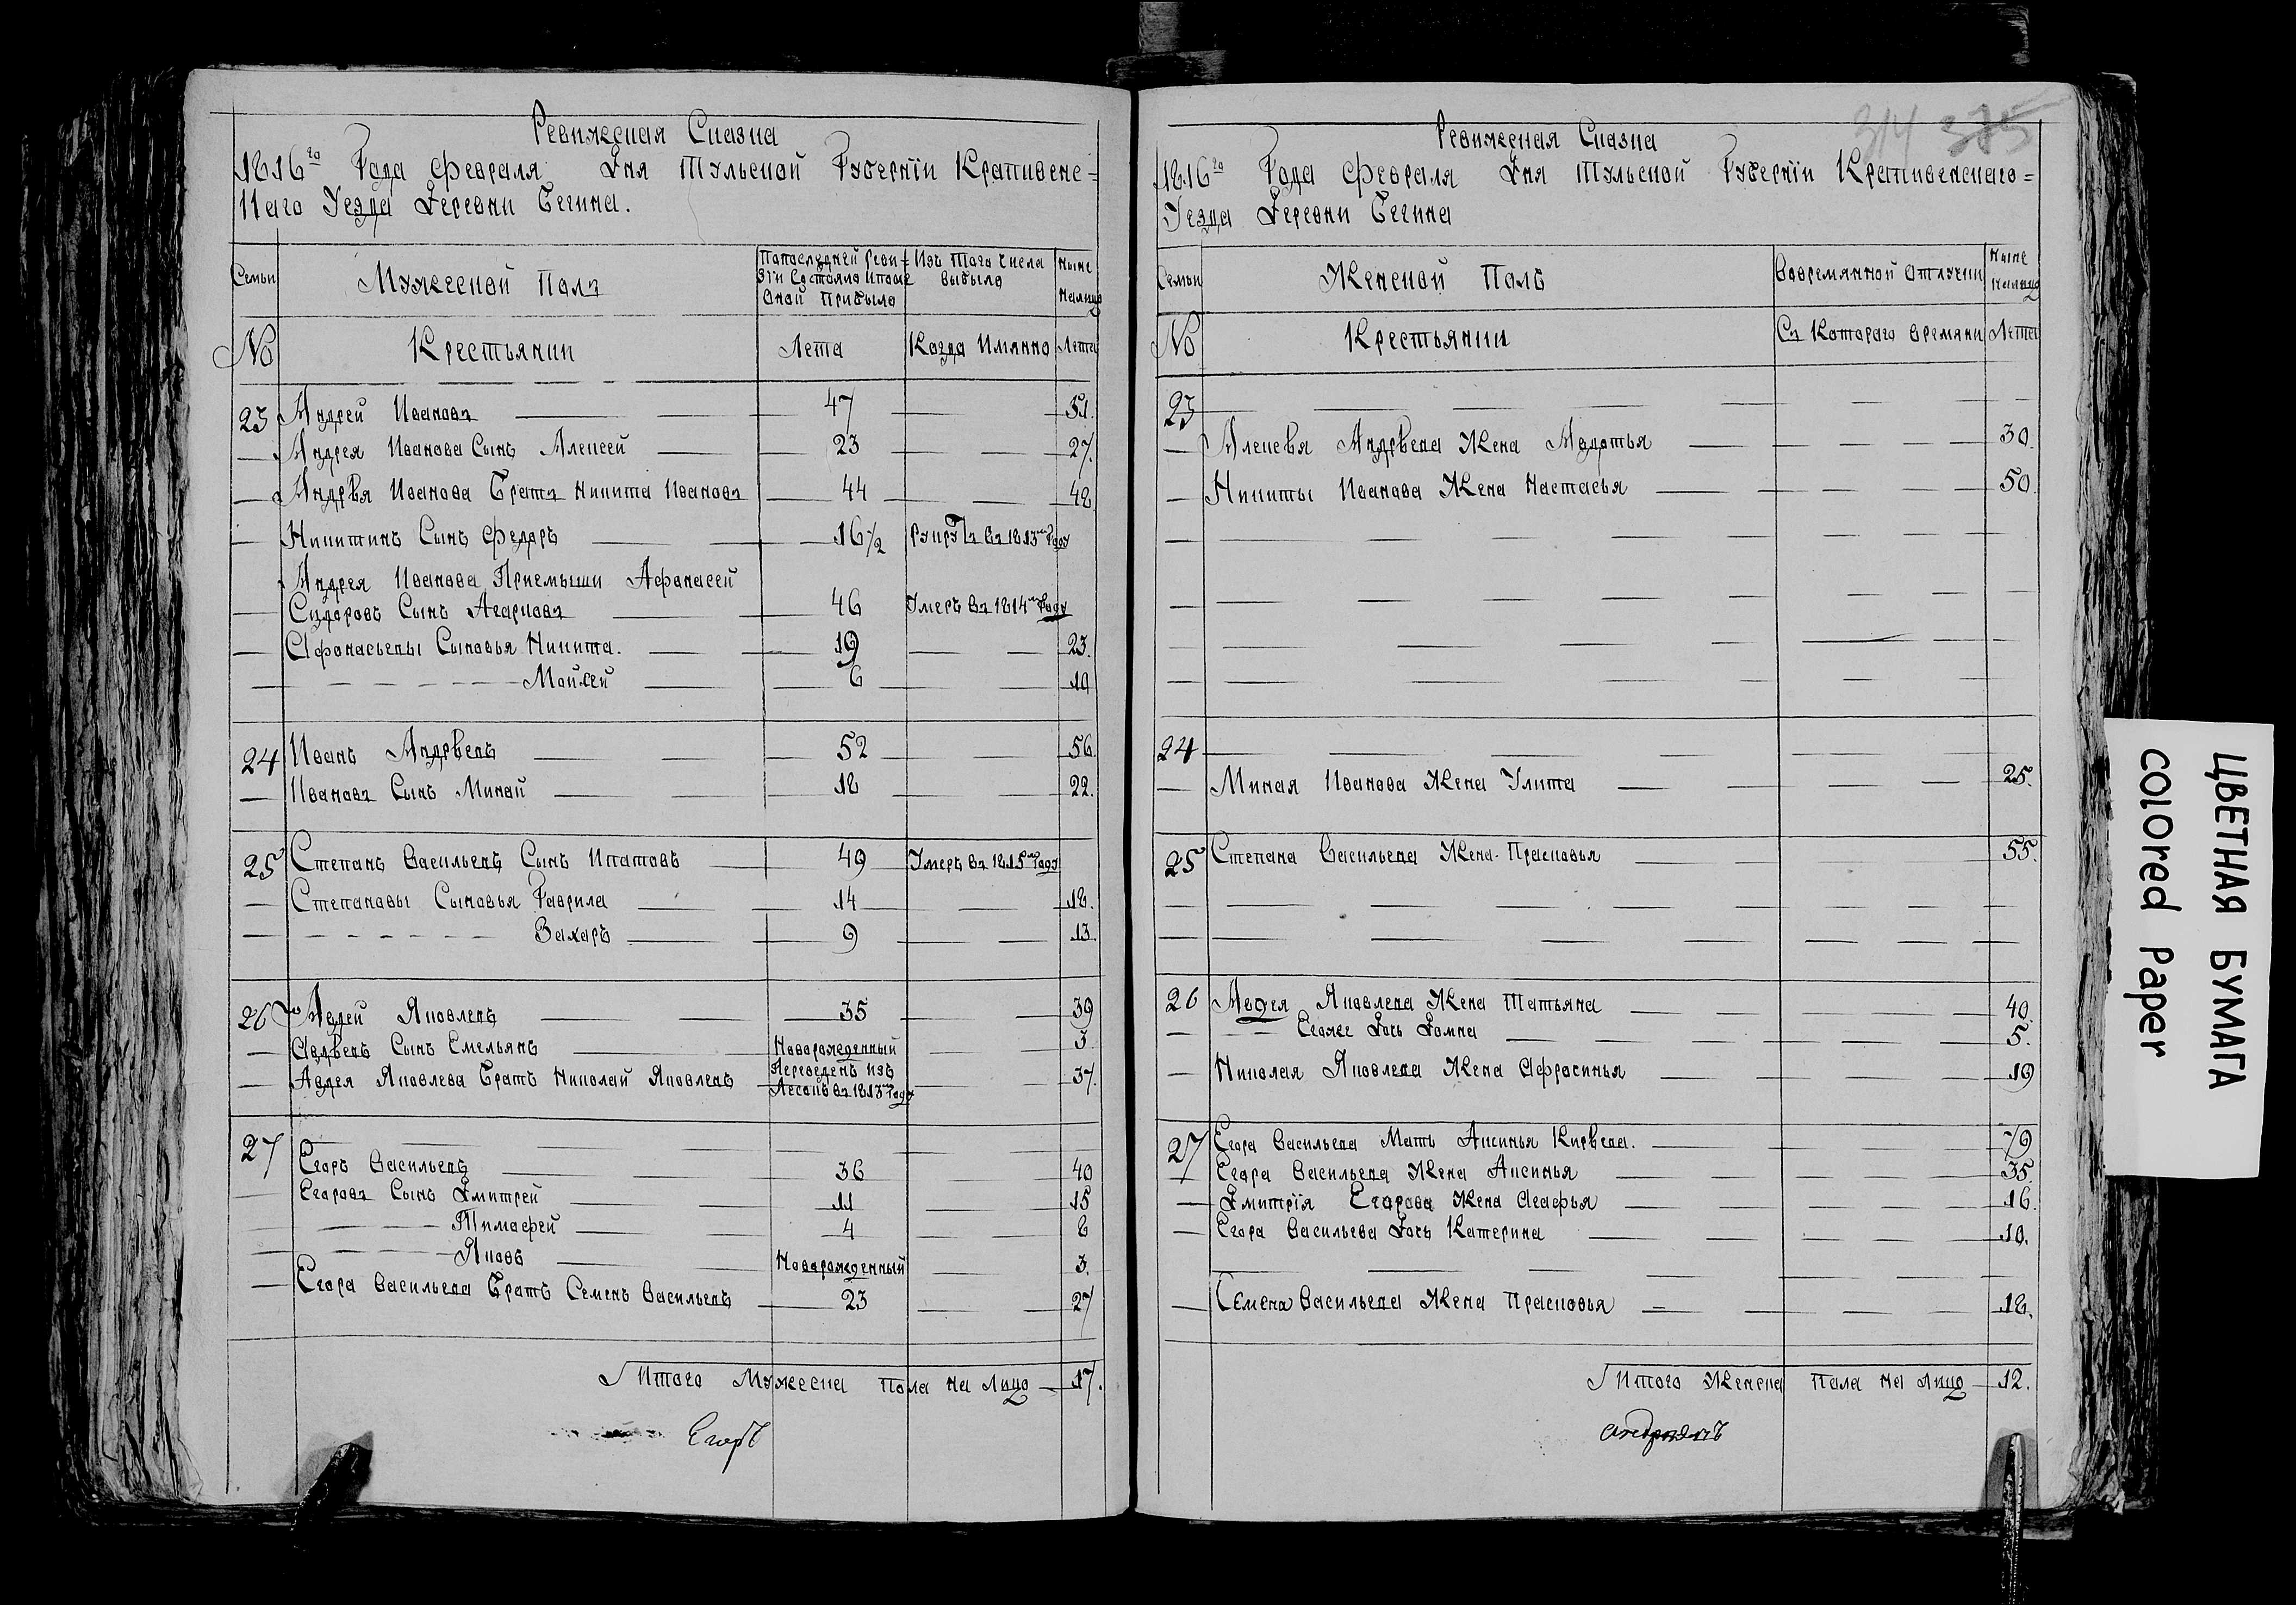 Ревижская Сказка
1816го Года Февраля Дня Тульской Губернїи Крапивенс=
каго Уезда Деревни Бегина.
Семьи
Мужеской Полъ
Попоследней Реви=
зїи Состояло ипосле
Оной Прибыло
Изъ Того Числа
выбыло
Ныне
налицо
No
Крестьянии
Лета
Когда Имянно
Лета
23 Андрей Ивановъ 47 51.
Андрея Иванова Сынъ Алексей 23 27.
Андрѣя Иванова Братъ Никита Ивановъ 44 48
Никитинъ Сынъ Федоръ 16 1/2 Рукрутъ въ 1813м Году
Андрея Иванова Приемыши Афанасей
Сидоровъ Сынъ 46 Умеръ въ 1814м Году
Афонасьевы Сыновья Никита. 19 23.
Мойсей 6 10
24 Иванъ Андрѣевъ 52 56.
Ивановъ Сынъ Минай 18 22.
25 Степанъ Васильевъ Сынъ Ипатовъ 49 Умеръ въ 1815м Году
Степановы Сыновья Гаврила 14 18.
Захаръ 9 13.
26 Авдей Яковлевъ 35 39
Авдѣевъ Сынъ Емельянъ Новорожденный 3.
Авдея Яковлева Братъ Николай Яковлевъ Переведенъ изъ
Лесокъ въ 1813м Году 37.
27
Егоръ Васильевъ 36 40
Егоровъ Сынъ Дмитрей 11 15
Тимофей 4 8
Яковъ Новорожденный 3.
Егора Васильева Братъ Семенъ Васильевъ 23 27
Итого Мужеска пола на Лицо 17.
Егоръ
314 375
Ревижская Сказка
1816го Года Февраля Дня Тульской Губернїи Крапивенскаго=
Уезда Деревни Бегина
Семьи
Женской Полъ
Вовремянной Отлучки
Ныне
налицо
No
Крестьянии
Съ Котораго Времяни
Лета
23
Алексѣя Андрѣева Жена Федотья 30.
Никиты Иванова Жена Настасья 50.
24
Миная Иванова Жена Улита 25.
25 Степана Васильева Жена Прасковья 55.
26 Авдея Яковлева Жена Татьяна 40.
Егоже Дочь Домна 5.
Николая Яковлева Жена Афросинья 19
27 Егора Васильева Мать Аксинья Кирѣева. 79
Егора Васильева Жена Аксинья 35.
Дмитрїя Егорова Жена Агафья 16.
Егора Васильева Дочь Катерина 10.
Семена Васильева Жена Прасковья 18.
Итого Женска Пола на Лицо 12.
андреянъ
ЦВЕТНАЯ БУМАГА
COlOred Paper